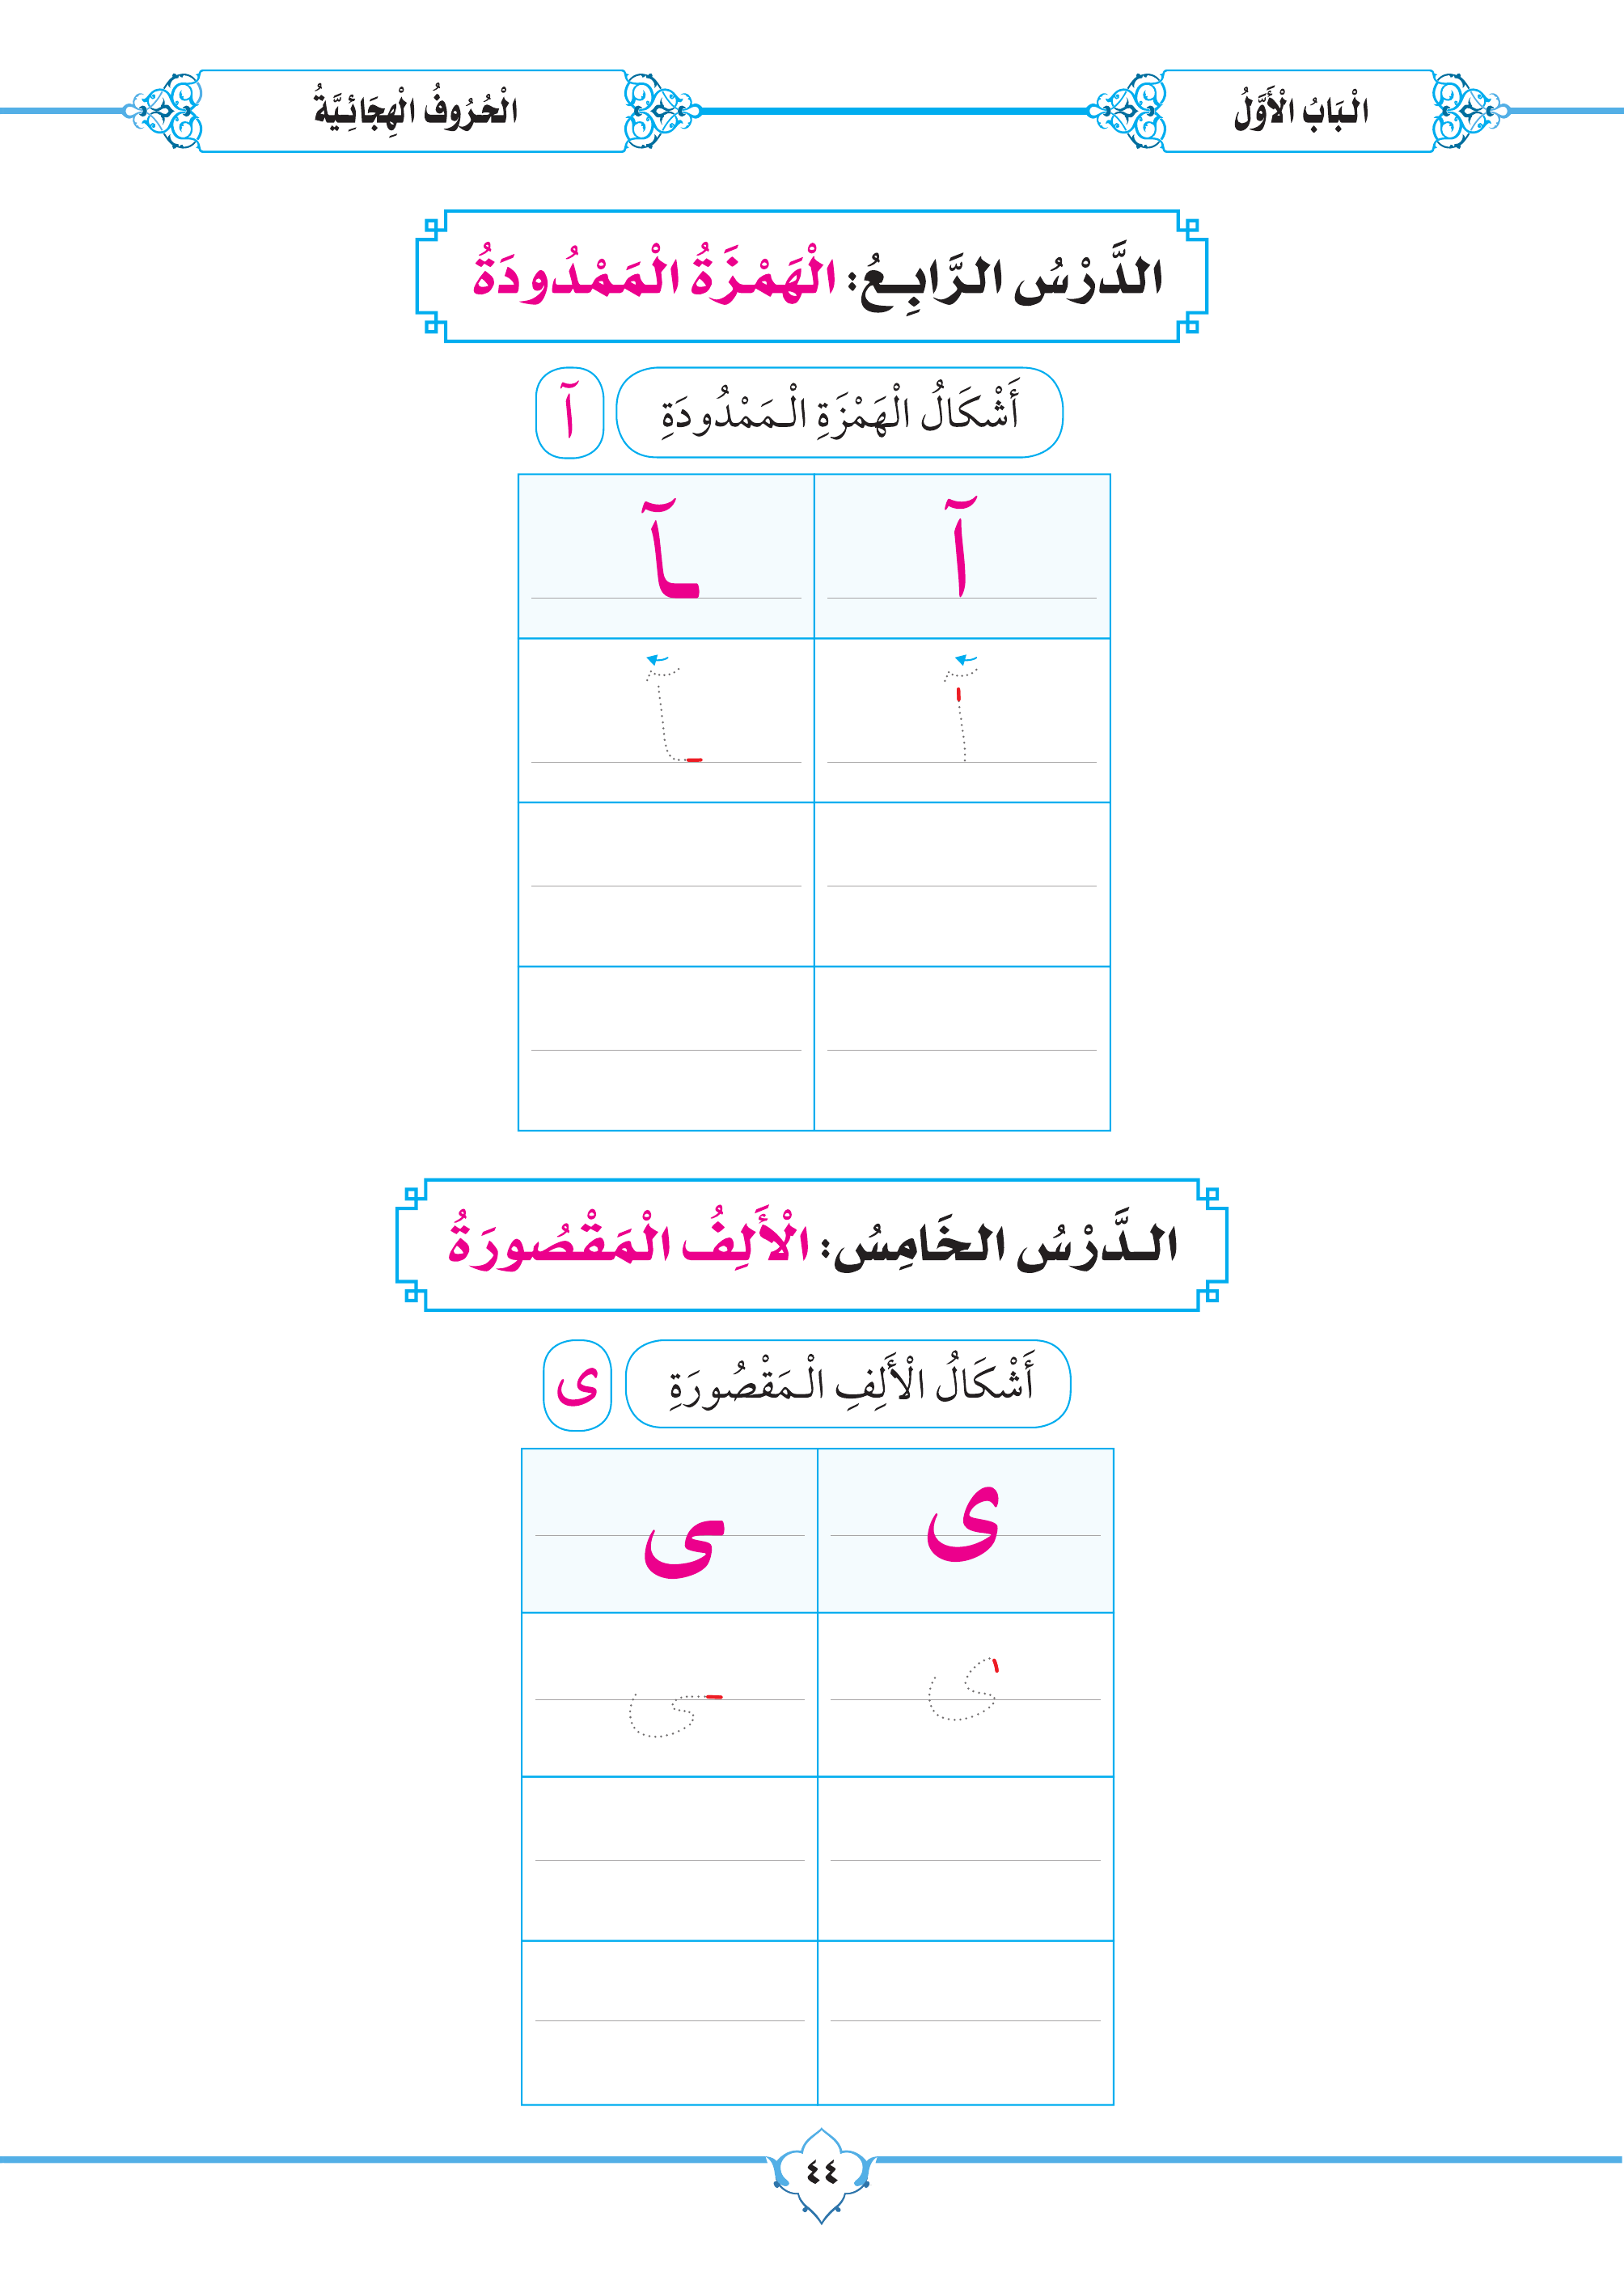 الْبَابُ الْأَوَّلُ
الْحُرُوفُ الْهِجَائِيَّةُ
الدَّرْسُ الرَّابِعُ: الْهَمْزَةُ الْمَمْدُودَةُ
أَشْكَالُ الْهَمْزَةِ الْـمَمْدُودَةِ آ
آ ـآ
آ ـآ
الدَّرْسُ الخَامِسُ: الْأَلِفُ الْمَقْصُورَةُ
أَشْكَالُ الْأَلِفِ الْـمَقْصُورَةِ ى
ى ـى
ى ـى
٤٤